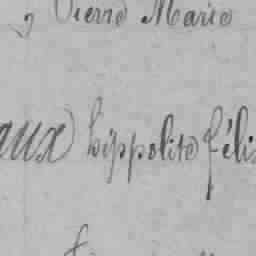 Pierre Marie
aux) hippolite féli